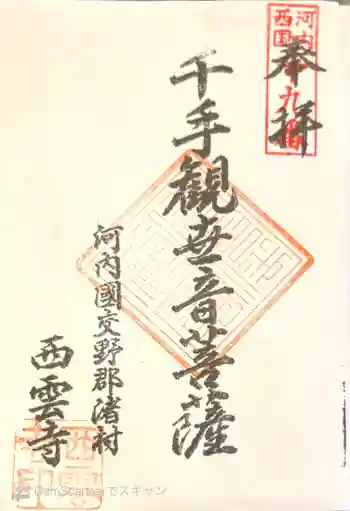 奉拝
河内
西国
九番
千手観世音菩薩
河内國交野郡渚村
西雲寺
CamScannerでスキャン